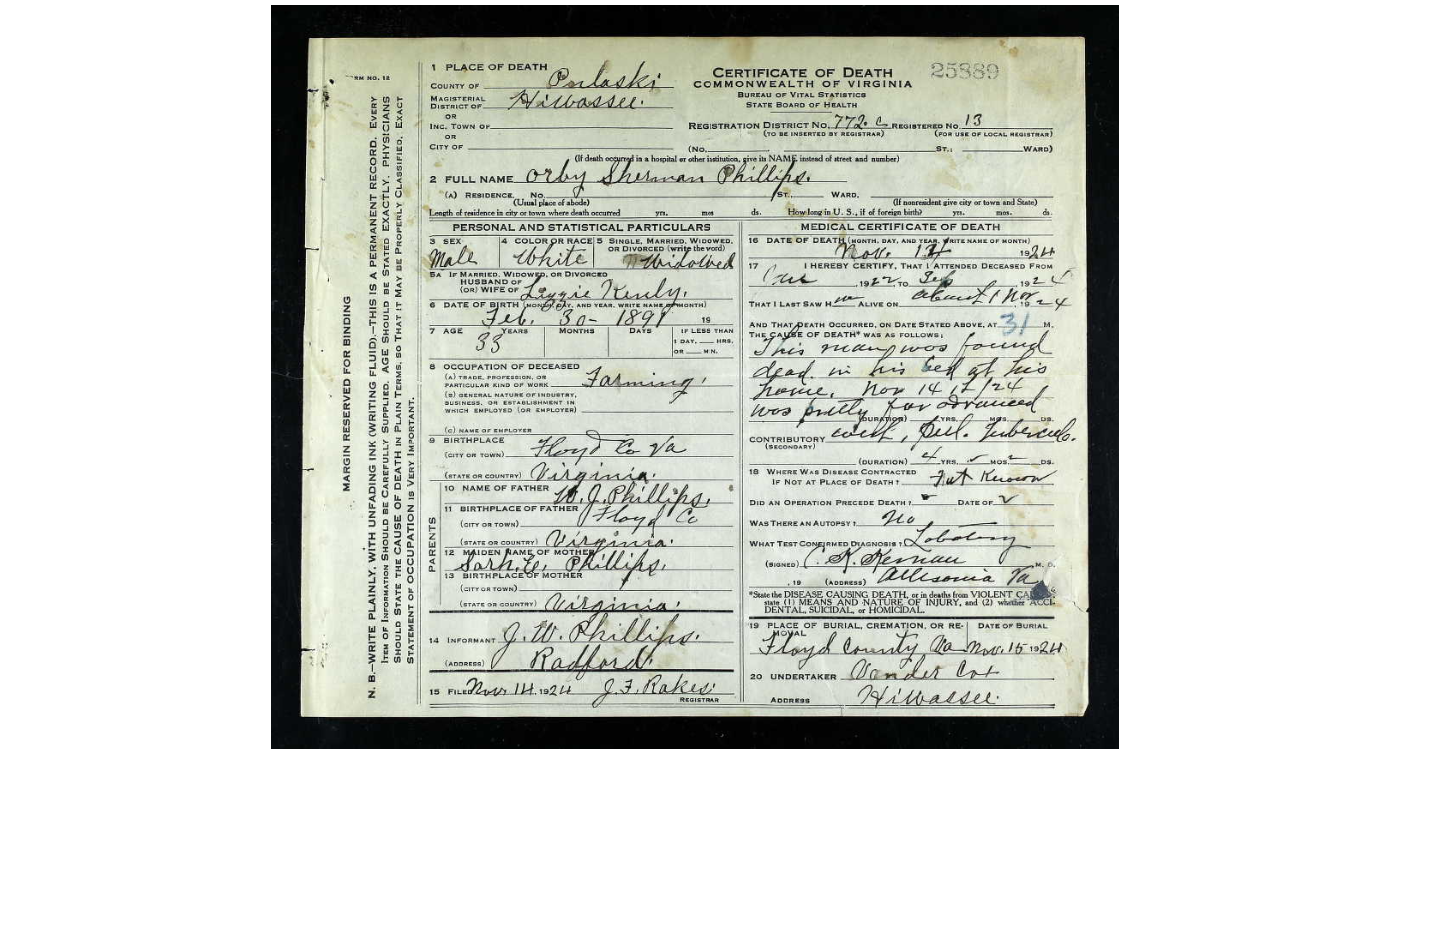 RM NO. 12
MARGIN RESERVED FOR BINDING
N. B.—WRITE PLAINLY, WITH UNFADING INK (WRITING FLUID).—THIS IS A PERMANENT RECORD. EVERY
ITEM OF INFORMATION SHOULD BE CAREFULLY SUPPLIED. AGE SHOULD BE STATED EXACTLY. PHYSICIANS
SHOULD STATE THE CAUSE OF DEATH IN PLAIN TERMS, SO THAT IT MAY BE PROPERLY CLASSIFIED. EXACT
STATEMENT OF OCCUPATION IS VERY IMPORTANT.
1 PLACE OF DEATH
COUNTY OF Pulaski
MAGISTERIAL DISTRICT OF Hiwassee.
OR
INC. TOWN OF
OR
CITY OF
CERTIFICATE OF DEATH
COMMONWEALTH OF VIRGINIA
BUREAU OF VITAL STATISTICS
STATE BOARD OF HEALTH
25889
REGISTRATION DISTRICT NO. 772. C REGISTERED NO. 13
(TO BE INSERTED BY REGISTRAR) (FOR USE OF LOCAL REGISTRAR)
(No. ST.; WARD)
(If death occurred in a hospital or other institution, give its NAME instead of street and number)
2 FULL NAME Orby Sherman Phillips.
(A) RESIDENCE. No. ST. WARD.
(Usual place of abode) (If nonresident give city or town and State)
Length of residence in city or town where death occurred yrs. mos ds. How long in U. S., if of foreign birth? yrs. mos. ds.
PERSONAL AND STATISTICAL PARTICULARS
3 SEX Male
4 COLOR OR RACE White
5 SINGLE, MARRIED, WIDOWED, OR DIVORCED (write the word) Widowed
5A IF MARRIED, WIDOWED, OR DIVORCED
HUSBAND OF
(OR) WIFE OF Lizzie
6 DATE OF BIRTH (MONTH, DAY, AND YEAR. WRITE NAME OF MONTH)
Feb. 30- 1891 19
7 AGE YEARS MONTHS DAYS IF LESS THAN
33 1 DAY, HRS.
OR MIN.
8 OCCUPATION OF DECEASED
(A) TRADE, PROFESSION, OR
PARTICULAR KIND OF WORK Farming.
(B) GENERAL NATURE OF INDUSTRY,
BUSINESS, OR ESTABLISHMENT IN
WHICH EMPLOYED (OR EMPLOYER)
(C) NAME OF EMPLOYER
9 BIRTHPLACE
(CITY OR TOWN) Floyd Co Va
(STATE OR COUNTRY) Virginia.
PARENTS
10 NAME OF FATHER W. J. Phillips.
11 BIRTHPLACE OF FATHER
(CITY OR TOWN) Floyd Co
(STATE OR COUNTRY) Virginia.
12 MAIDEN NAME OF MOTHER
Sarh. E. Phillips.
13 BIRTHPLACE OF MOTHER
(CITY OR TOWN)
(STATE OR COUNTRY) Virginia.
14 INFORMANT J. W. Phillips.
(ADDRESS) Radford.
15 FILED Nov. 14. 1924 J. F. Rakes.
REGISTRAR
MEDICAL CERTIFICATE OF DEATH
16 DATE OF DEATH (MONTH, DAY, AND YEAR. WRITE NAME OF MONTH)
Nov. 1924
17 I HEREBY CERTIFY, THAT I ATTENDED DECEASED FROM
1922 TO Sep 1924
THAT I LAST SAW H ALIVE ON about 1 Nov 1924
AND THAT DEATH OCCURRED, ON DATE STATED ABOVE, AT M.
31
THE CAUSE OF DEATH* WAS AS FOLLOWS:
This man was found
dead in his bed at his
home, Nov 14 /24
was pretty far advanced
(DURATION) YRS. MOS. DS.
CONTRIBUTORY with, Pul. Tubercul.
(SECONDARY)
(DURATION) 4 YRS. MOS. DS.
18 WHERE WAS DISEASE CONTRACTED
IF NOT AT PLACE OF DEATH? Known
DID AN OPERATION PRECEDE DEATH? DATE OF
WAS THERE AN AUTOPSY? No
WHAT TEST CONFIRMED DIAGNOSIS?
(SIGNED) C. K. Kernan M. D.
, 19 (ADDRESS) Allisonia Va
*State the DISEASE CAUSING DEATH, or in deaths from VIOLENT CAUSES
state (1) MEANS AND NATURE OF INJURY, and (2) whether ACCI-
DENTAL, SUICIDAL, or HOMICIDAL.
19 PLACE OF BURIAL, CREMATION, OR RE- DATE OF BURIAL
MOVAL
Floyd County Va Nov. 15 1924
20 UNDERTAKER Vander Cox
ADDRESS Hiwassee.